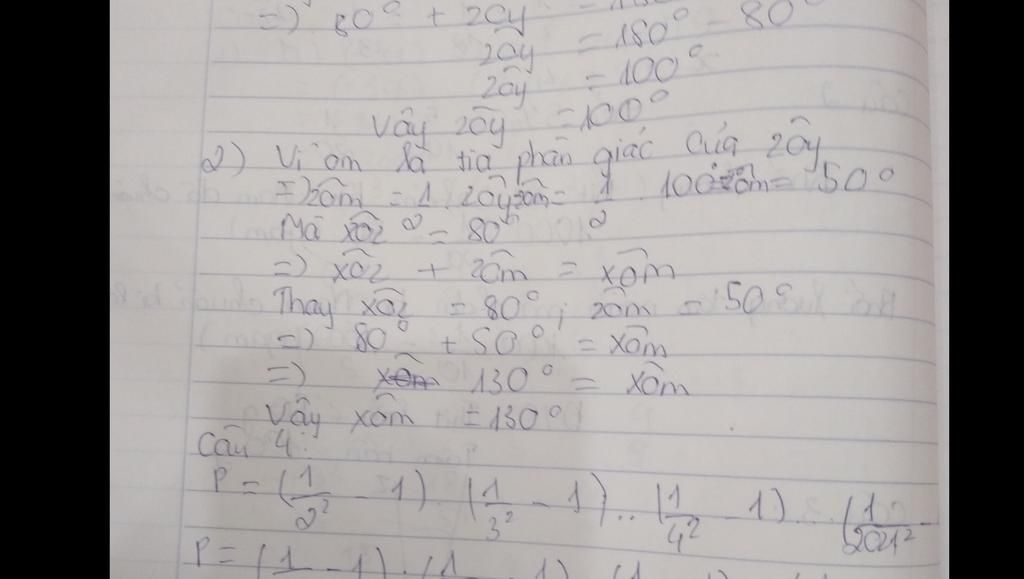 =) 80° + zôy
zôy = 180° - 80°
zôy = 100°
Vậy zôy = 100°
2) Vì om là tia phân giác của zôy
=) zôm = 1/2 . zôy zôm = 1/2 . 100° zôm = 50°
Mà xôz = 80°
=) xôz + zôm = xôm
Thay xôz = 80° ; zôm = 50°
=) 80° + 50° = xôm
=) xôm 130° = xôm
Vậy xôm = 130°
Câu 4:
P = (1/2² - 1) . (1/3² - 1) .. (1/4² - 1) ... (1/2021² -
P = (1 - 1) . (1 - 1)